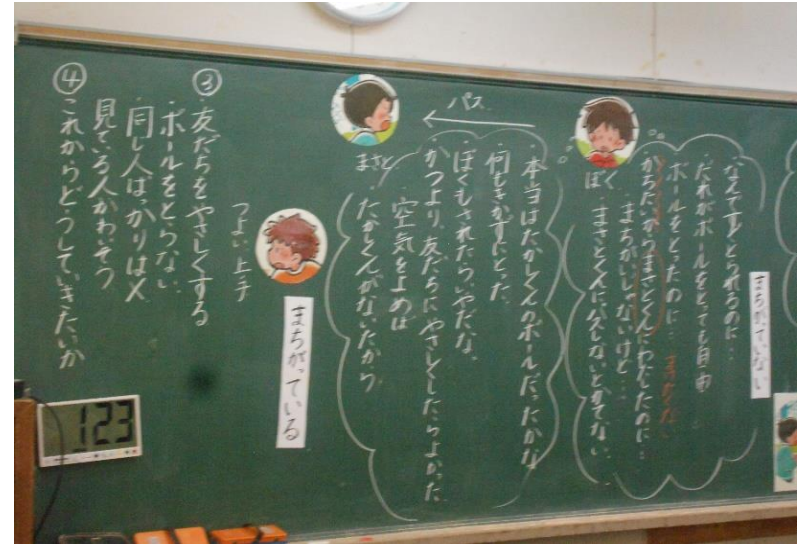 まちがっていない
なんで すぐとられるのに
だれがボールをとっても自由
ボールをとったのに…
かちたいからまさとくんにわたしたのに…
まちがいじゃないけど…
まさとくんにパスしないとかてない。
ぼく
パス
本当はたかしくんのボールだったかな
何もきかずにとった
ぼくもされたらいやだな。
かつより、友だちにやさしくしたらよかった
空気をよめば
たかしくんがないたから
まさと
まちがっている
つよい、上手
③・友だちをやさしくする
・ボールをとらない。
・同じ人ばっかりは×
見ている人がかわいそう
④これからどうしていきたいか
123